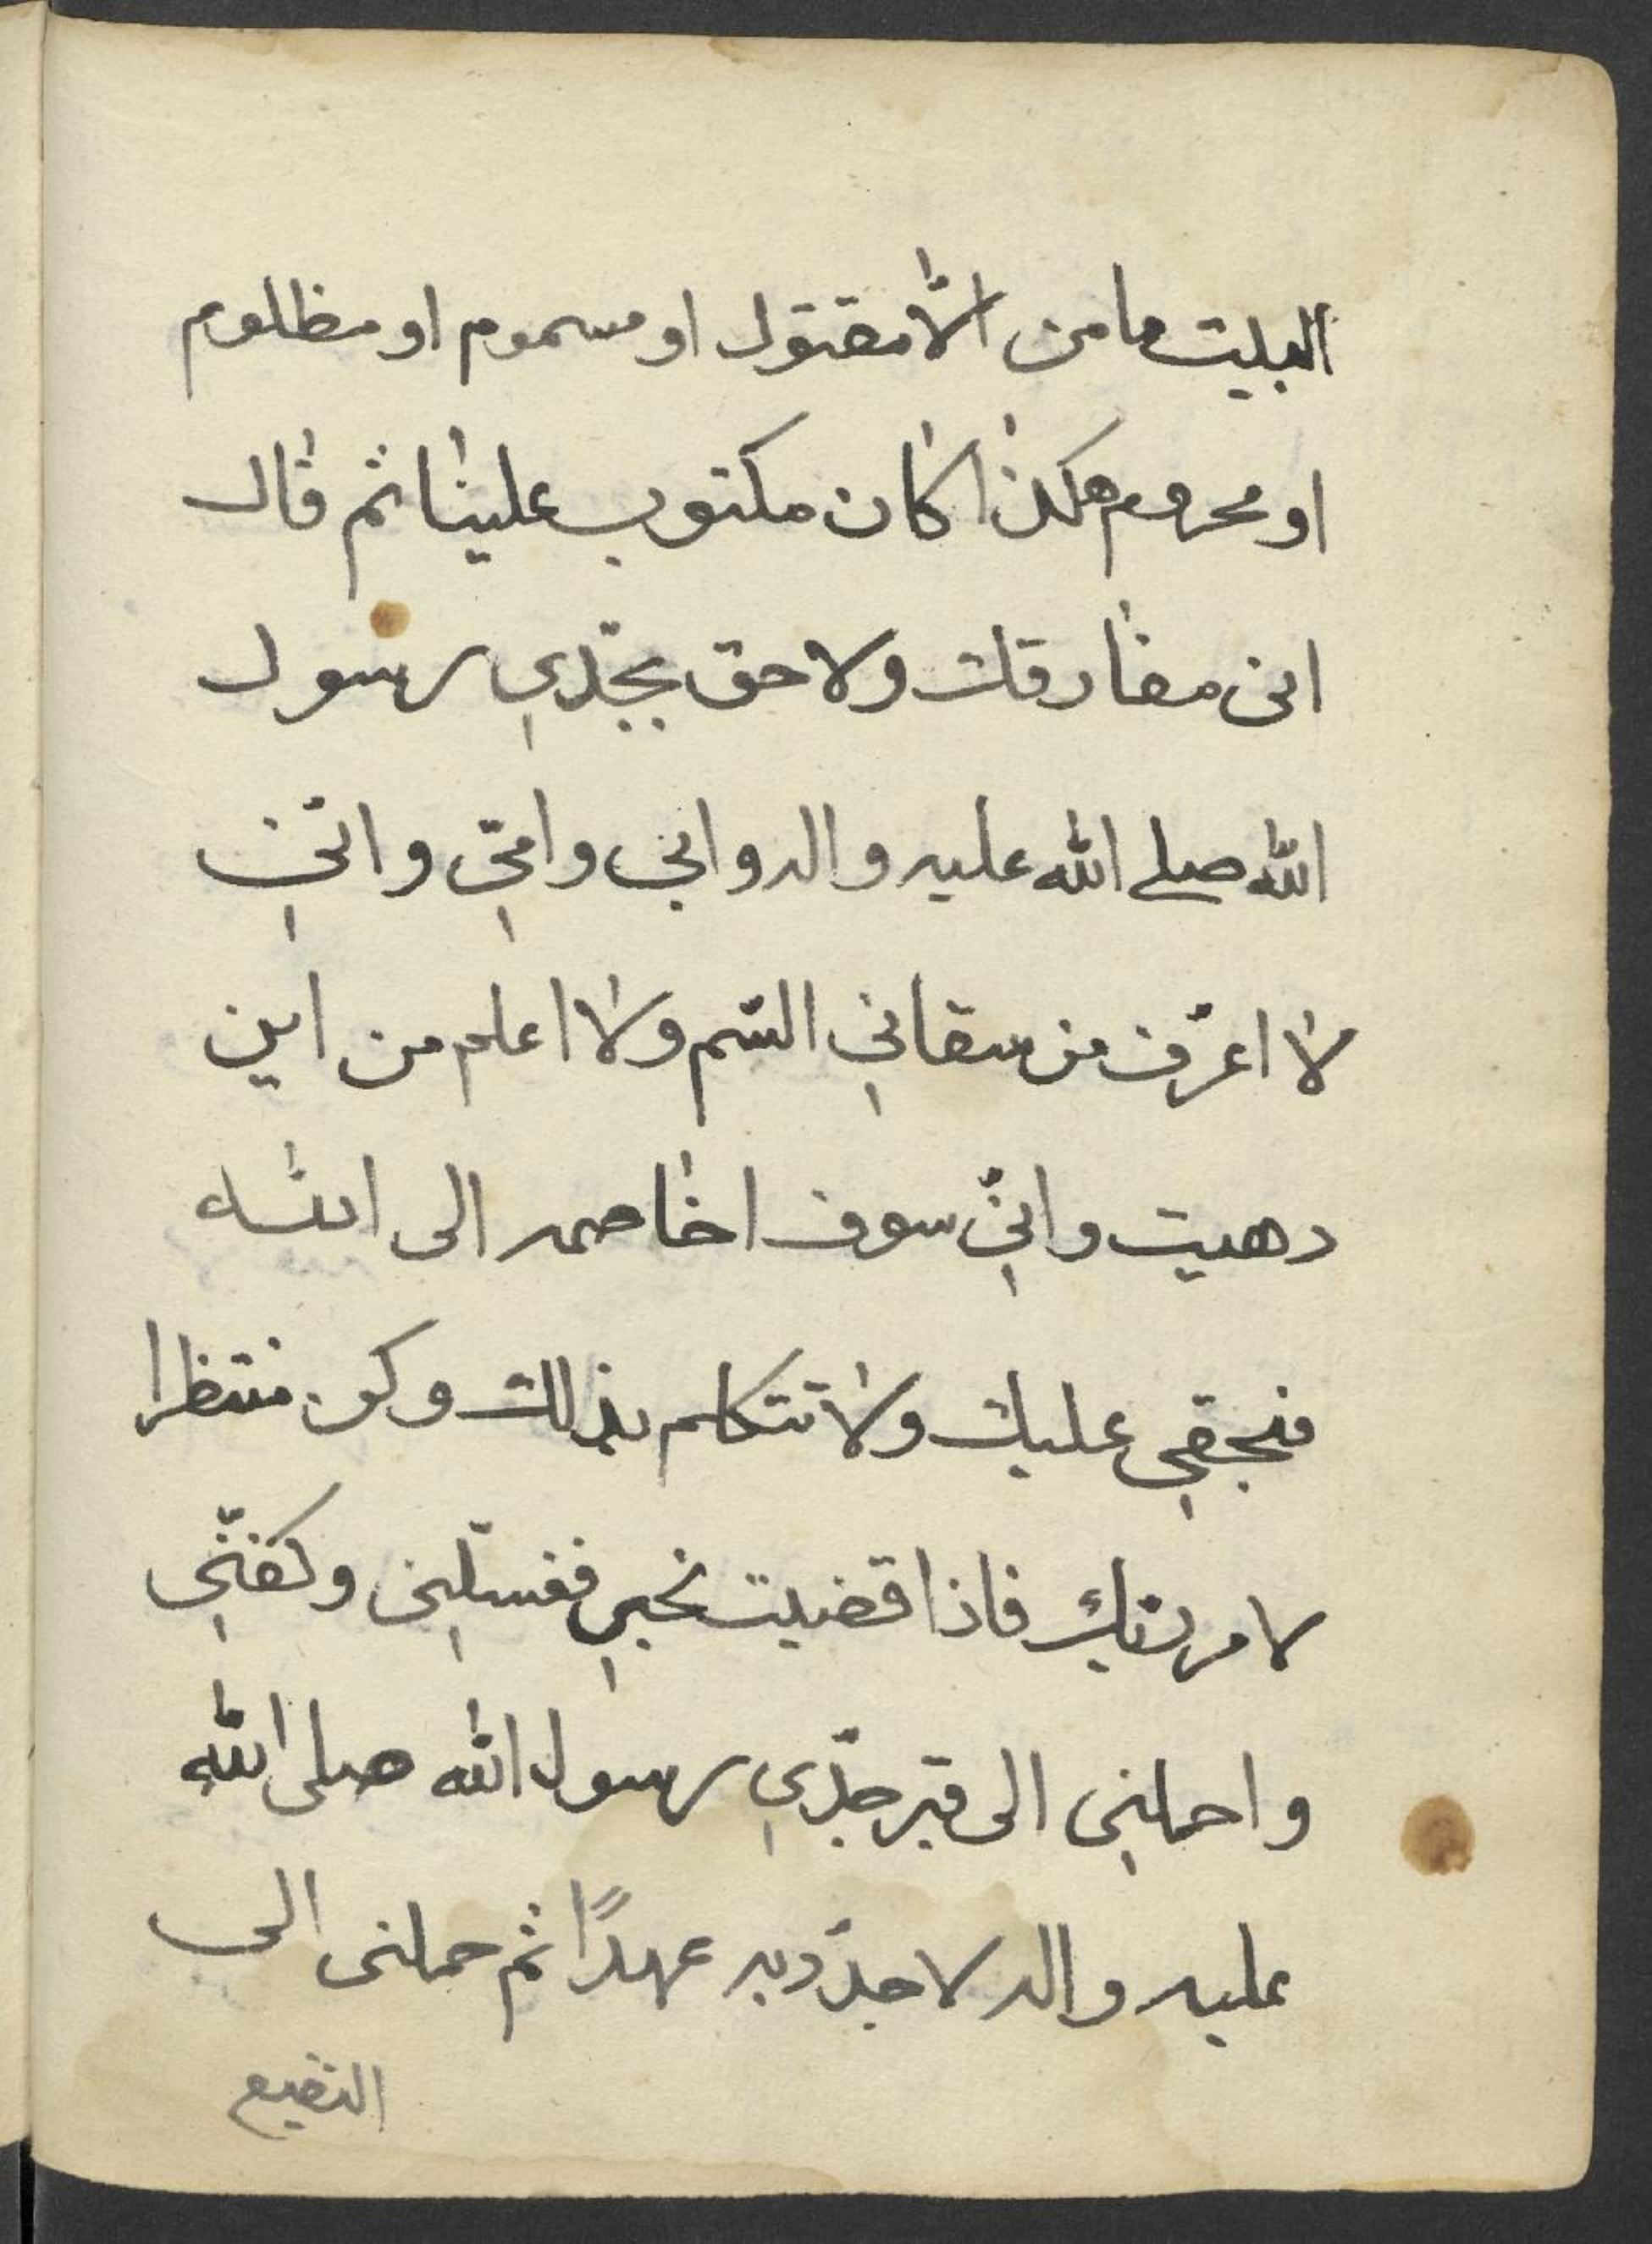 البيت ما من الّا مقتول او مسموم او مظلوم
او محروم هكذا كان مكتوب علينا ثم قال
انى مفارقك ولاحق بجدّي رسول
الله صلى الله عليه واله وابي وامّي وانّي
لا اعرف من سقاني السّم ولا اعلم من اين
دهيت وانّي سوف اخاصمه الى الله
فبحقي عليك ولا تتكلم بذلك وكن منتظرا
لامر ربك فاذا قضيت نحبي فغسّلني وكفنّي
واحملني الى قبر جدّي رسول الله صلى الله
عليه واله لاجدّد به عهدًا ثم حملنى الى
البقيع